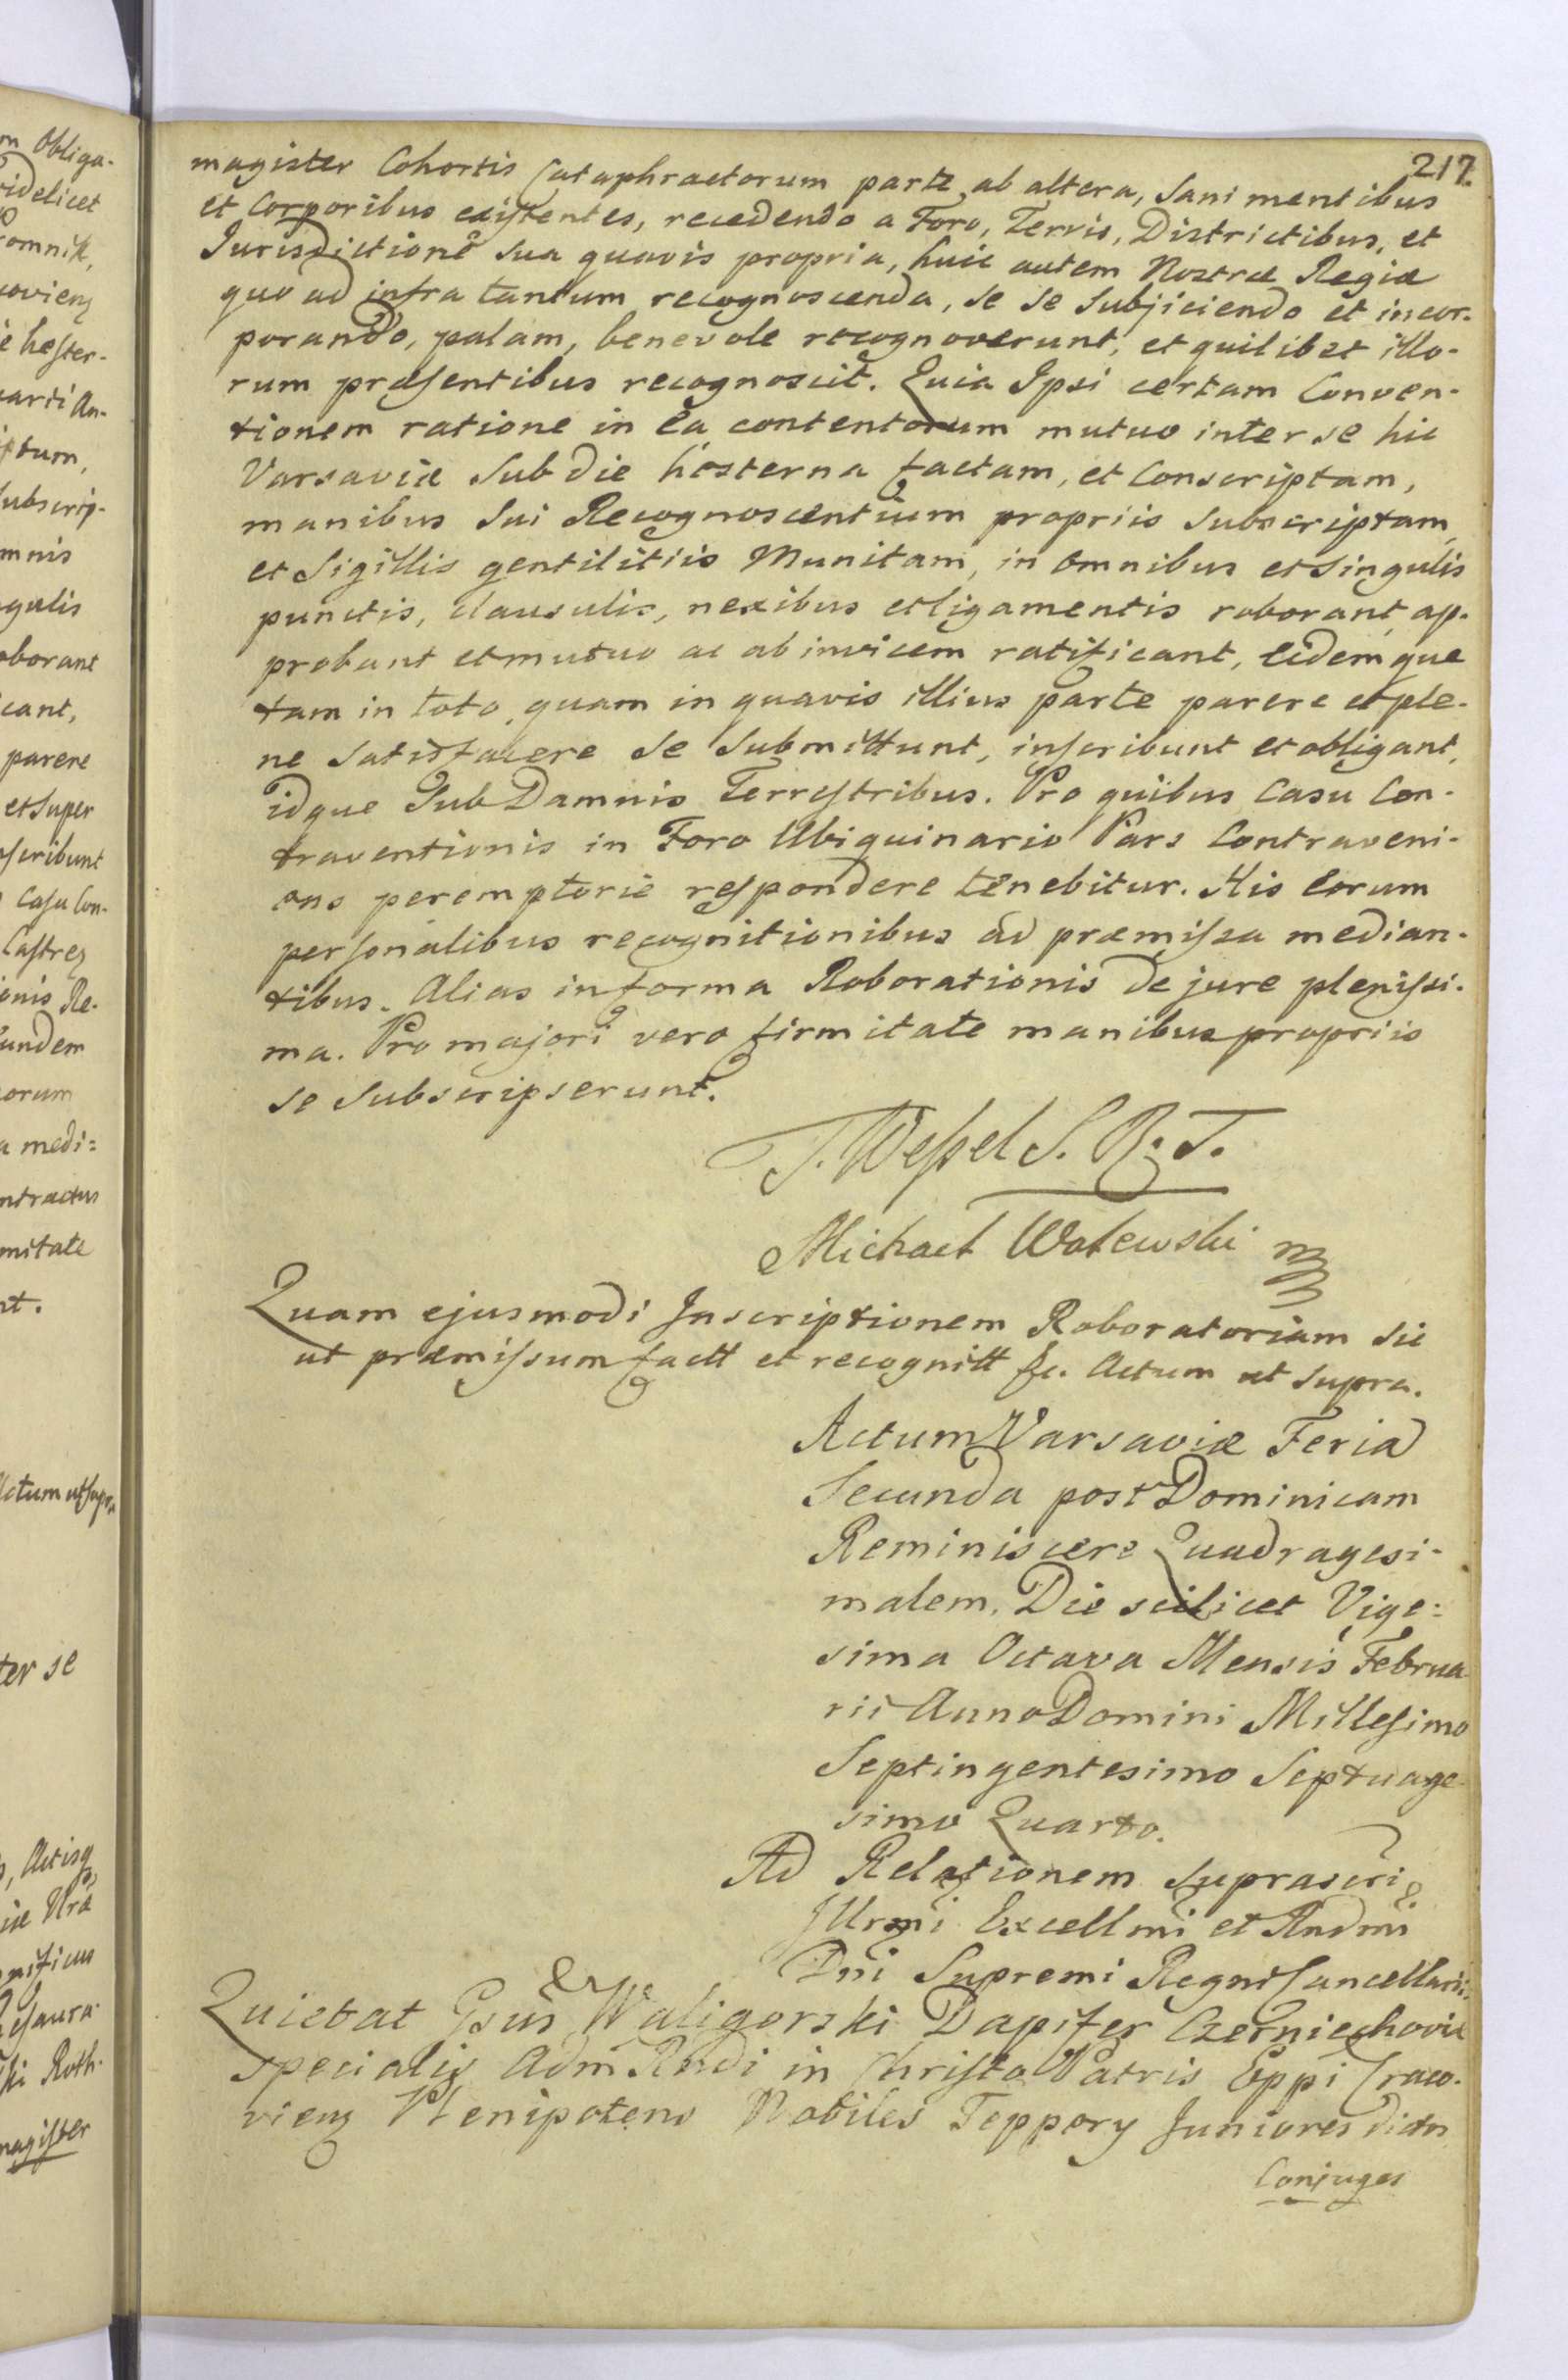 217.
magister Cohortis Cataphractorum parte ab altera, Sani mentibus
et Corporibus existentes, recedendo a Foro, Terris, Districtibus, et
Jurisdictione sua quavis propria, huic autem Nostræ Regiæ
quo ad infra tantum recognoscenda, se se Subjiciendo et incor-
porando, palam, benevole recognoverunt, et quilibet illo-
rum præsentibus recognoscit. Quia Ipsi certam Conven-
tionem ratione in Ea contentorum mutuo inter se hic
Varsaviæ Sub die hesterna factam, et Conscriptam,
manibus Sui Recognoscentium propriis Subscriptam,
et Sigillis gentilitiis Munitam, in omnibus et Singulis
punctis, clausulis, nexibus et ligamentis roborant, ap-
probant et mutuo ac ab invicem ratificant, Eidemque
tam in toto quam in quavis illius parte parere et ple-
ne satisfacere se Submittunt, inscribunt et obligant,
idque Sub Damnis Terrestribus. Pro quibus Casu Con-
traventionis in Foro Ubiquinario Pars Contraveni-
ens peremptorie respondere tenebitur. His Eorum
personalibus recognitionibus ad præmissa median-
tibus. Alias in forma Roborationis de jure plenissi-
ma. Pro majori vero firmitate manibus propriis
se Subscripserunt.
T. Wessel S. R. T.
Michael Walewski
Quam ejusmodi Inscriptionem Roboratoriam sic
ut præmissum factt et recognitt &c. Actum ut supra.
Actum Varsaviæ Feria
Secunda post Dominicam
Reminiscere Quadragesi-
malem. Die scilicet Vige=
sima Octava Mensis Februa
rii Anno Domini Millesimo
Septingentesimo Septuage-
simo Quarto.
Ad Relationem suprascri
Illrmi Excellmi et Rndmi
Dni Supremi Regni Cancellarii.
Quietat Gsus Waligorski Dapifer Czerniechoviæ
specialis Adm Rndi in Christo Patris Eppi Craco-
vieng Plenipotens Nobiles Teppery Juniores dictos
Conjuges